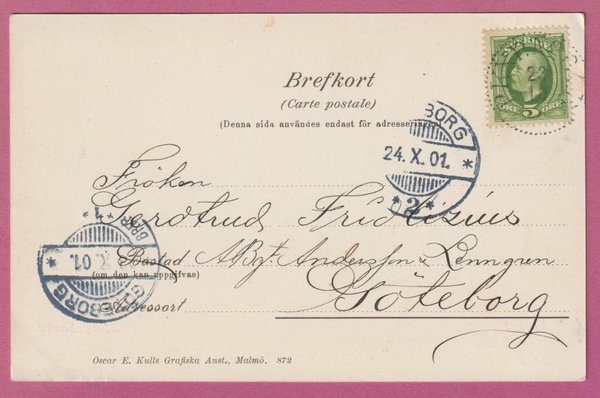 SVERIGE
5 ÖRE
Brefkort
(Carte postale)
(Denna sida användes endast för adressering
BORG
24. X. 01.
* 2 *
Fröken
Gerdtrud Fridizius
Bostad A.Bgt. Andersson & Lenngren
(om den kan uppgifvas)
Göteborg
Adressort
* 1 *
BRBR
X. 01.
GÖTEBORG
Oscar E. Kulls Grafiska Anst., Malmö. 872